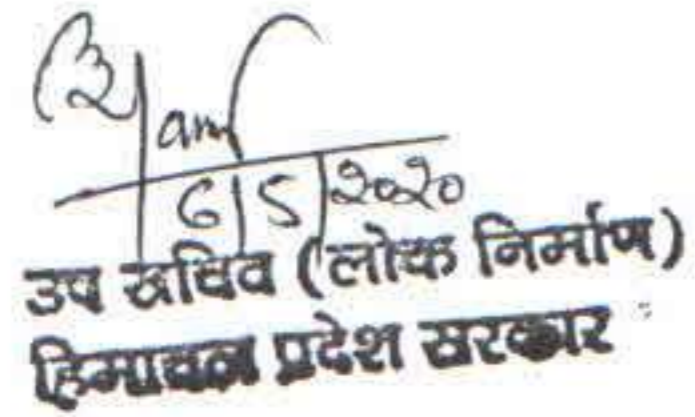 6/5/2020
उप सचिव (लोक निर्माण)
हिमाचल प्रदेश सरकार